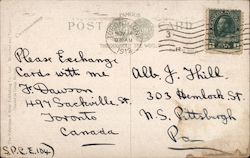 POST
1912
Please Exchange
Cards with me
F. Dawson
497 Sackville St.
Toronto
Canada
(S.P.C.E. 104)
Alb. J. Hill.
303 Hemlock St
N.S. Pittsburgh
Pa